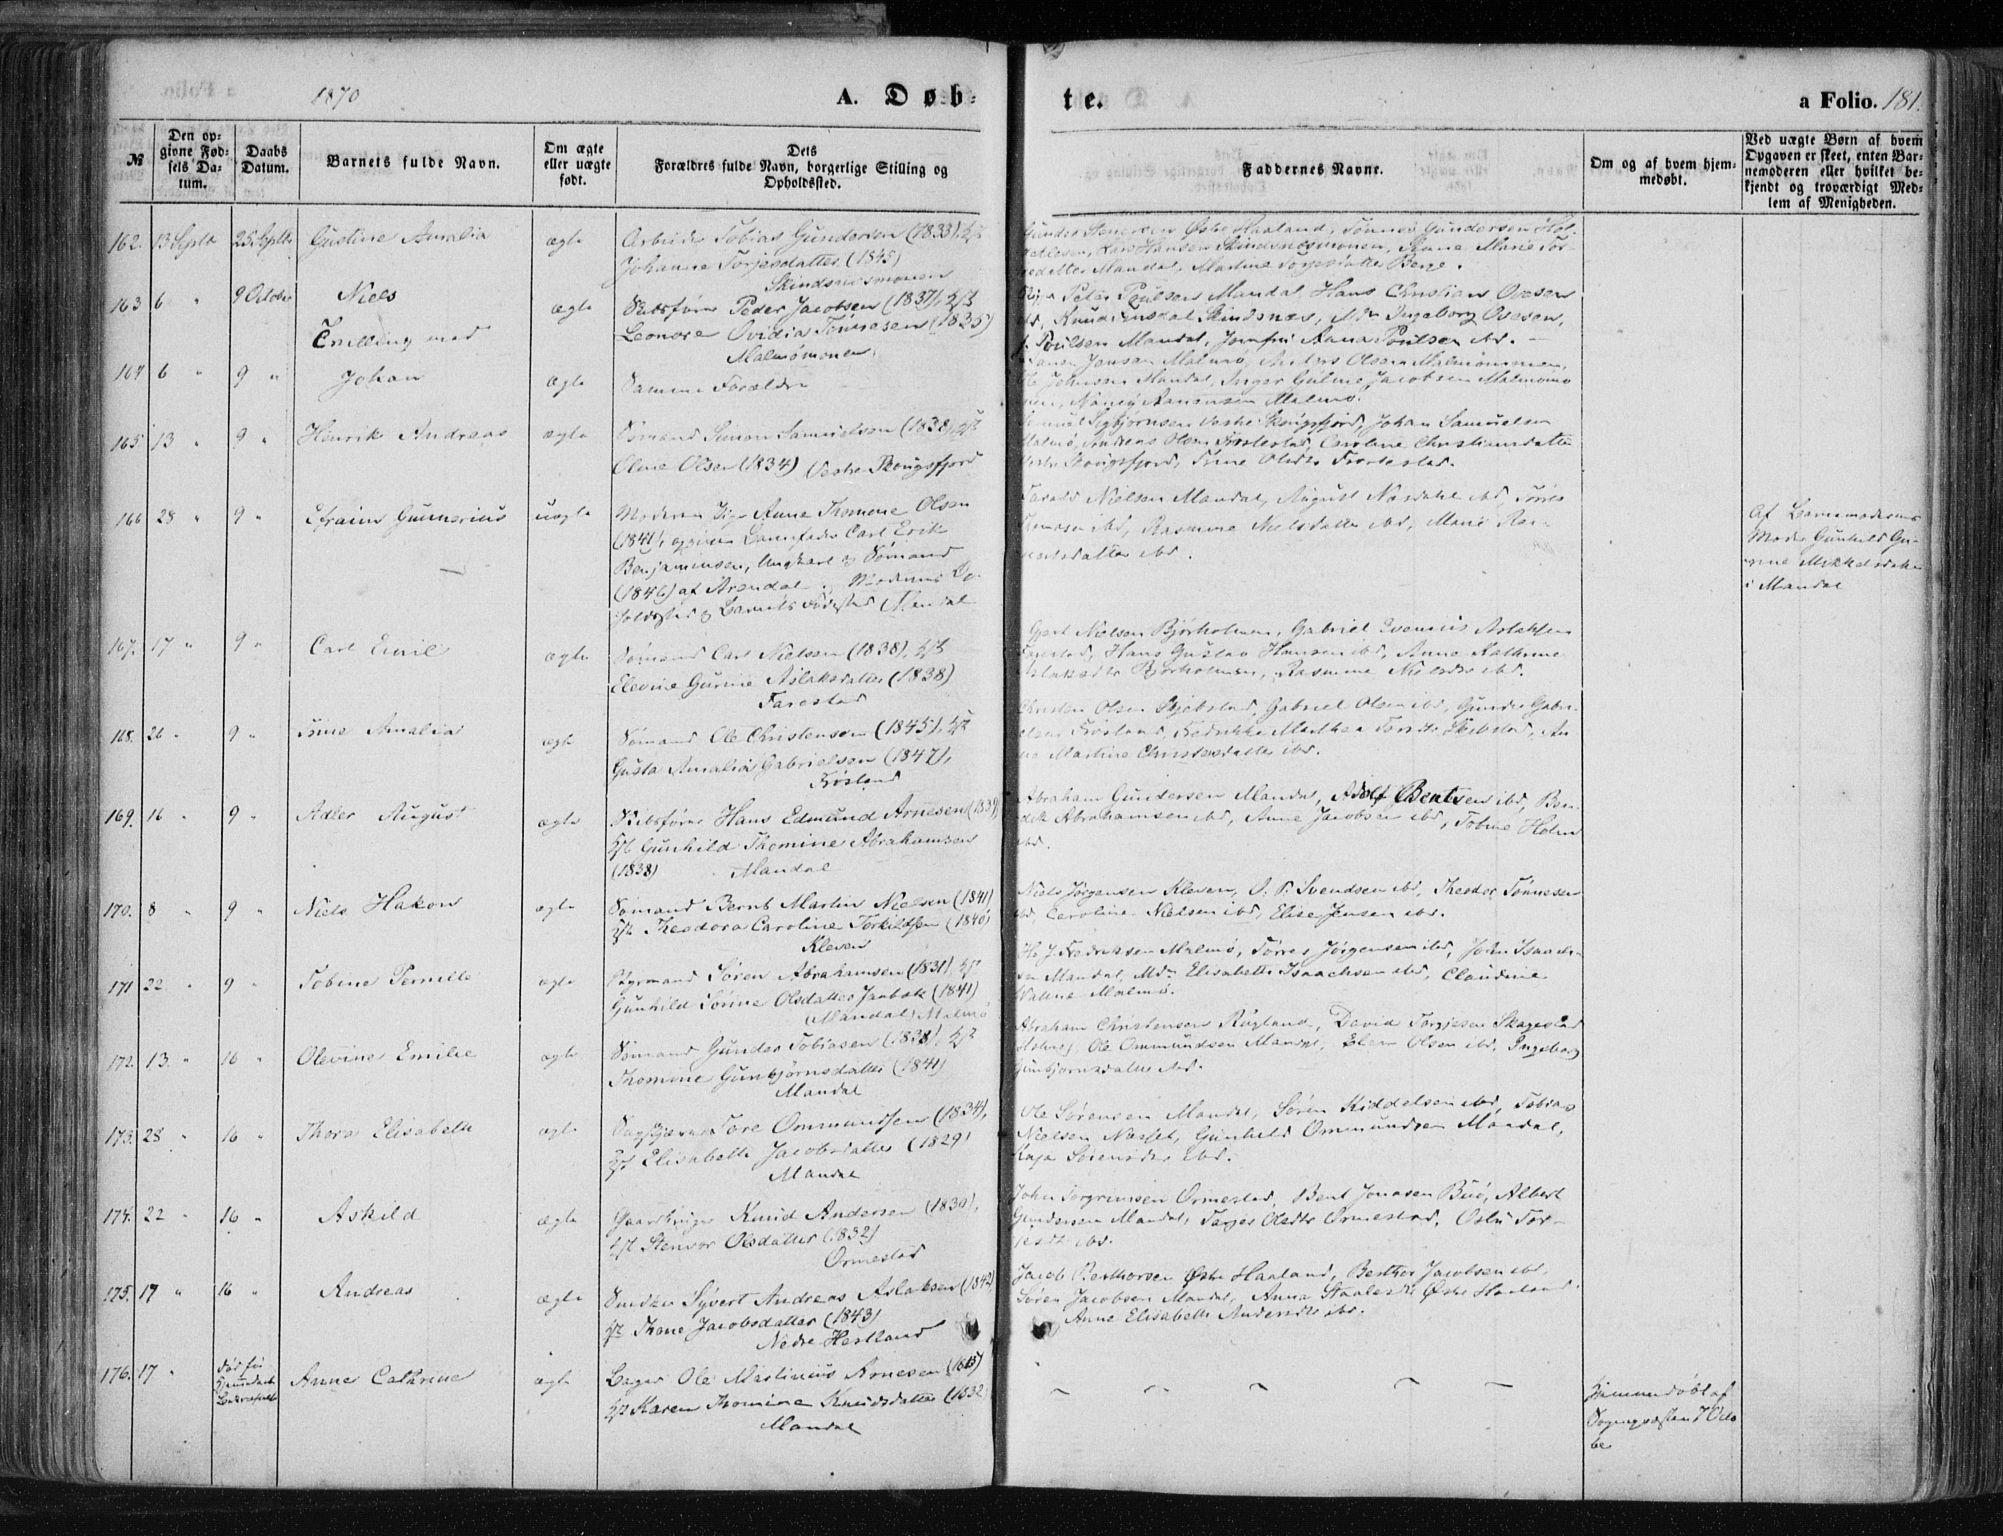 1870
A. Døb-
te.
a Folio. 181.
№
Den op-
givne Fød-
sels Da-
tum.
Daabs
Datum.
Barnets fulde Navn.
Om ægte
eller uægte
født.
Dets
Forældres fulde Navn, borgerlige Stilling og
Opholdssted.
Faddernes Navne.
Om og af hvem hjem-
medøbt.
Ved uægte Børn af hvem
Opgaven er skeet, enten Bar-
nemoderen eller hvilket be-
kjendt og troværdigt Med-
lem af Menigheden.
162. 13 Septb 25 Septbr Gustine Amalia ægte Arbeider Tobias Gundersen (1833), Hst
Johanne Torjesdatter (1845)
Skindsnesmonen
Østre Haaland, Tønnes Gundersen
Hansen Skindsnesmonen, Marie Tor-
datter Mandal, Martine Torjesdatter Berge.
163 6 " 9 October Niels ægte Skibsfører Peder Jacobsen (1837), Hst
Tvilling med Leonore Ovidia Tønnesen (1835)
Malmømonen
Peter Poulsen Mandal, Hans Christian Ovesen
ibd, Skindsnæs, Ingeborg Ovesen,
Poulsen Mandal, Jomfru Anna Poulsen ibd. —
164 6 " 9 " Johan ægte Samme Forældre
Jensen Malmø, Olsen Malmømonen,
Johnsen Mandal, Inger Guline Jacobsen Malmømo
Nancy Aanensen Malmø.
165 13 " 9 " Henrik Andreas ægte Sømand Simon Samuelsen (1838), Hst
Oline Olsen (1834) Vestre Skougsfjord
Samuel Sigbjørnsen Vestre Skougsfjord, Johan Samuelsen
Malmø, Andreas Olsen Caroline Christiansdatter
Vestre Skougsfjord, Trine Olsdtr
166 28 " 9 " Efraim Gunnerius uægte Moderen Pige Anne Thomine Olsen
(1841), opgiven Barnefader Carl Erik
Benjaminsen, Ungkarl og Sømand
(1846) af Arendal. Moderens Op-
holdssted og Barnets Fødested Mandal
Nielsen Mandal, August ibd,
ibd, Rasmine Nielsdatter ibd, Marie
datter ibd.
Af Barnemoderens
Moder Gunhild Gu-
rine Mikkelsdatter
i Mandal
167. 17 " 9 " Carl Emil ægte Sømand Carl Nielsen (1838), Hst
Elevine Gurine Aslaksdatter (1838)
Farestad
Gjert Nielsen Bjørholmen, Gabriel Evenius Aslaksen
Farestad, Hans Gustav Hansen ibd, Anne Kathrine
Aslaksdtr Bjørholmen, Rasmine Nielsdtr ibd.
168. 26 " 9 " Trine Amalia ægte Sømand Ole Christensen (1845), Hst
Gusta Amalia Gabrielsen (1847),
Frøsland
Christen Olsen Skjebstad, Gabriel Olsen ibd, Gunder Gabri-
elsen Frøsland, Fredrikke Mathea Skjebstad, An-
ne Martine Christensdatter ibd.
169. 16 " 9 " Adler August ægte Skibsfører Hans Edmund Arnesen (1834)
Hst Gunhild Thomine Abrahamsen
(1838) Mandal
Abraham Gundersen Mandal, Adolf Bentsen ibd, Ben-
dik Abrahamsen ibd, Anne Jacobsen ibd, Tobine Holm
ibd.
170. 8 " 9 " Niels Hakon ægte Sømand Bernt Martin Nielsen (1841)
Hst Theodora Caroline Torkildsen (1840)
Kleven
Niels Jørgensen Kleven, O. P. Svendsen ibd, Theodor Tønnesen
ibd, Caroline Nielsen ibd, Elise Jensen ibd.
171 22 " 9 " Tobine Pernille ægte Styrmand Søren Abrahamsen (1831), Hst
Gunhild Tørine Olsdatter (1841)
(Mandal) Malmø
H. J. Fredriksen Malmø, Tørres Jørgensen ibd, John Isaach-
sen Mandal, Md. Elisabeth Isaachsen ibd, Claudine
Malmø.
172. 13. " 16 " Olevine Emilie ægte Sømand Gunder Tobiasen (1838), Hst
Thomine Gunbjørnsdatter (1841)
Mandal
Abraham Christensen Rugland, David Torgjesen Skagestad
Holme, Ole Ommundsen Mandal, Olsen ibd, Ingeborg
Gunbjørnsdatter ibd.
173. 28 " 16 " Thora Elisabeth ægte Tore Ommundsen (1834),
Hst Elisabeth Jacobsdatter (1829)
Mandal
Ole Sørensen Mandal, Søren Kiddelsen ibd, Tobias
Nielsen Næsset, Gunhild Ommundsen Mandal,
Kaja Sørensdtr ibd.
174. 22 " 16 " Askild ægte Gaardbruger Knud Andersen (1830),
Hst Stensør Olsdatter (1832)
Ormestad
John Torgrimsen Ormestad, Bent Jonasen Buø, Albert
Gundersen Mandal, Olsdtr Ormestad, Oslu Tor-
jesdt ibd.
175. 17 " 16 " Andreas ægte Snedker Syvert Andreas Aslaksen (1842)
Hst Thone Jacobsdatter (1843)
Nedre Hesland
Jacob Berthorsen Østre Haaland, Berthor Jacobsen ibd,
Søren Jacobsen Mandal, Anna Staalesdtr Østre Haaland
Anne Elisabeth Andersdtr ibd.
176. 17 " død før Anne Cathrine ægte Bager Ole Martinius Arnesen (1815)
Hst Karen Thomine Knudsdatter (1832)
Mandal
Hjemmedøbt af
Sognepræsten 7 Octo
ber